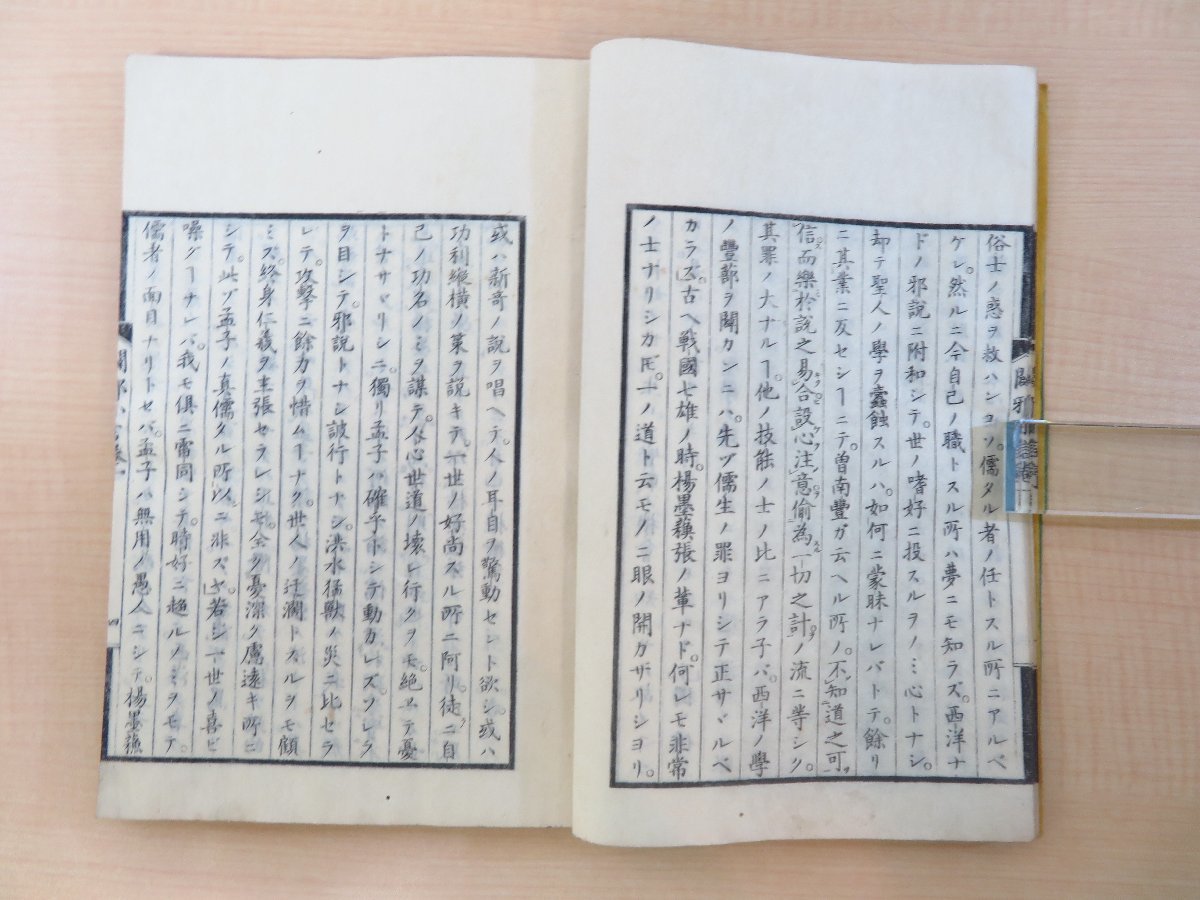 俗士ノ惑ヲ救ハンコソ。儒タル者ノ任トスル所ニアルベ
ケレ。然ルニ今自己ノ職トスル所ハ夢ニモ知ラズ。西洋ナ
ドノ邪説ニ附和シテ。世ノ嗜好ニ投スルヲノミ心トナシ。
却テ聖人ノ學ヲ蠧蝕スルハ。如何ニ蒙昧ナレバトテ。餘リ
ニ其業ニ反セシヿニテ。曽南豐ガ云ヘル所ノ。不知道之可
信而樂於説之易合設心注意偷為一切之計ノ流ニ等シク。
其罪ノ大ナルヿ。他ノ技能ノ士ノ比ニアラ子バ。西洋ノ學
ノ豐蔀ヲ闢カンニハ。先ヅ儒生ノ罪ヨリシテ正サヾルベ
カラズ。古ヘ戰國七雄ノ時。楊墨穰張ノ軰ナド。何レモ非常
ノ士ナリシカ𪜈。一ノ道ト云モノニ眼ノ開カザリシヨリ。
或ハ新竒ノ説ヲ唱ヘテ。人ノ耳目ヲ驚動セント欲シ。或ハ
功利縱横ノ策ヲ説キテ。一世ノ好尚スル所ニ阿リ。徒ニ自
己ノ功名ノミヲ謀テ。人心世道ノ壊レ行クヲモ。絶エテ憂
トナサヾリシニ。獨リ孟子ハ確乎トシテ動カレズ。フレラ
ヲ目シテ。邪説トナシ詖行トナシ。洪水猛獸ノ災ニ比セラ
レテ。攻撃ニ餘力ヲ惜ムヿナク。世人ノ迂濶トスルヲモ顧
ミズ。終身仁義ヲ主張セラレシモ。全ク憂深ク慮遠キ所ニ
シテ。此ゾ孟子ノ真儒タル所以ニ非ズヤ。若シ一世ノ喜ビ
噪グヿナレバ。我モ俱ニ雷同シテ。時好ニ趨ルノミヲモテ。
儒者ノ面目ナリトセバ。孟子ハ無用ノ愚人ニシテ。楊墨穰
四